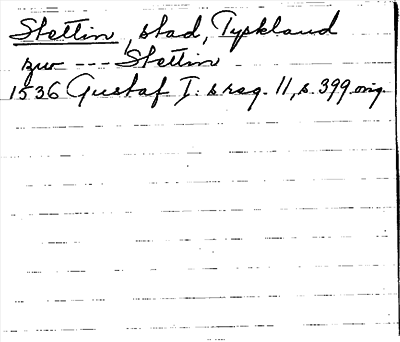 Stettin, stad, Tyskland
zuw --- Stettin
1536 Gustaf I: s rsg. 11, s. 399 orig.